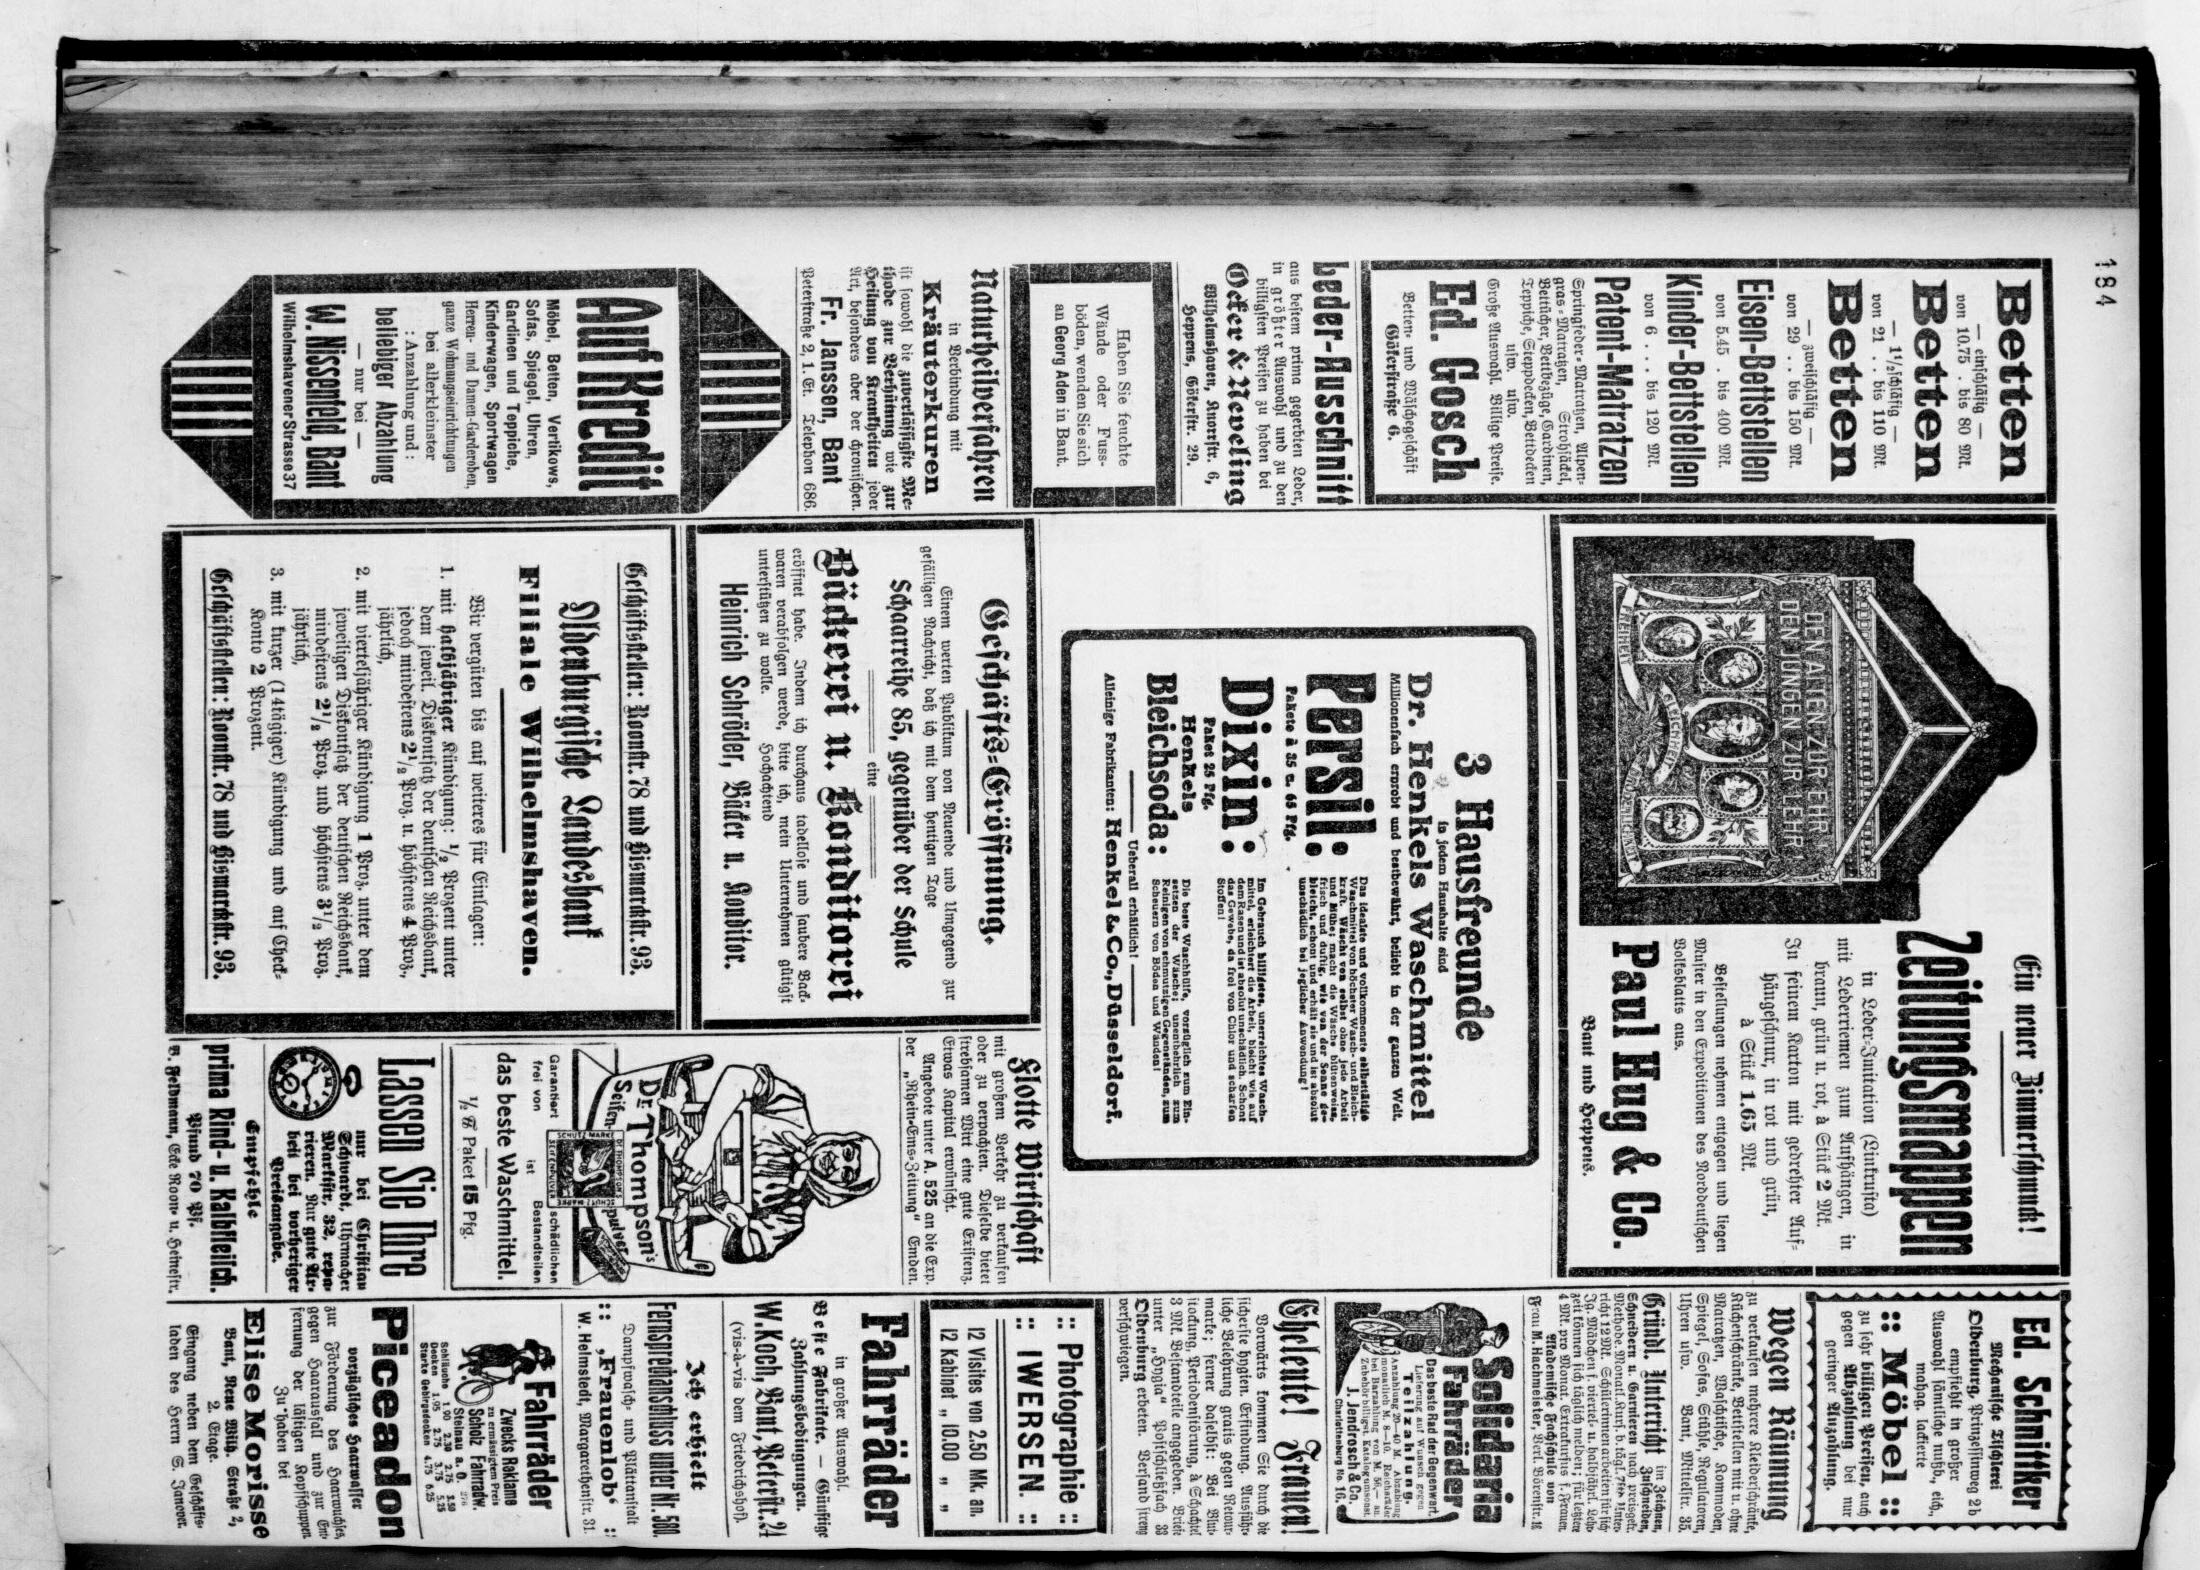 184
Betten
— einschläfig —
von 10.75 . bis 80 Mk.
Betten
— 1½schläfig —
von 21 . . bis 110 Mk.
Betten
— zweischläfig —
von 29 . . bis 150 Mk.
Eisen-Bettstellen
von 5.45 . bis 400 Mk.
Kinder-Bettstellen
von 6 . . . bis 120 Mk.
Patent-Matratzen
Springfeder-Matratzen, Alpen-
gras-Matratzen, Strohsäcke,
Bettücher, Bettbezüge, Gardinen,
Teppiche, Steppdecken, Bettdecken
usw. usw.
Große Auswahl. Billige Preise.
Ed. Gosch
Betten- und Wäschegeschäft
Gökerstraße 6.
Leder-Ausschnitt
aus bestem prima gegerbten Leder,
in größter Auswahl und zu den
billigsten Preisen zu haben bei
Ocker & Neveling
Wilhelmshaven, Knorrstr. 6,
Heppens, Gökerstr. 29.
Haben Sie feuchte
Wände oder Fuss-
böden, wenden Sie sich
an Georg Aden in Bant.
Naturheilverfahren
in Verbindung mit
Kräuterkuren
ist sowohl die zuverlässigste Me-
thode zur Verhütung wie zur
Heilung von Krankheiten jeder
Art, besonders aber der chronischen.
Fr. Janssen, Bant
Peterstraße 2, 1. Et. Telephon 686.
Auf Kredit
Möbel, Betten, Vertikows,
Sofas, Spiegel, Uhren,
Gardinen und Teppiche,
Kinderwagen, Sportwagen
Herren- und Damen-Garderoben,
ganze Wohnungseinrichtungen
bei allerkleinster
: Anzahlung und :
beliebiger Abzahlung
— nur bei —
W. Nissenfeld, Bant
Wilhelmshavener Strasse 37
DEN ALTEN ZUR EHR
DEN JUNGEN ZUR LEHR
FREIHEIT
GLEICHHEIT
BRÜDERLICHKEIT
Ein neuer Zimmerschmuck!
Zeitungsmappen
in Leder-Imitation (Linkrusta)
mit Lederriemen zum Aufhängen, in
braun, grün u. rot, à Stück 2 Mk.
In feinem Karton mit gedrehter Auf-
hängeschnur, in rot und grün,
à Stück 1.65 Mk.
Bestellungen nehmen entgegen und liegen
Muster in den Expeditionen des Norddeutschen
Volksblatts aus.
Paul Hug & Co.
Bant und Heppens.
3 Hausfreunde
in jedem Haushalte sind
Dr. Henkels Waschmittel
Millionenfach erprobt und bestbewährt, beliebt in der ganzen Welt.
Persil:
Pakete à 35 u. 65 Pfg.
Das idealste und vollkommenste selbsttätige
Waschmittel von höchster Wasch- und Bleich-
kraft. Wäscht von selbst ohne jede Arbeit
und Mühe; macht die Wäsche blütenweiss,
frisch und duftig, wie von der Sonne ge-
bleicht, schont und erhält sie und ist absolut
unschädlich bei jeglicher Anwendung!
Dixin:
Paket 25 Pfg.
Im Gebrauch billigstes, unerreichtes Wasch-
mittel, erleichtert die Arbeit, bleicht wie auf
dem Rasen und ist absolut unschädlich. Schont
das Gewebe, da frei von Chlor und scharfen
Stoffen!
Henkels
Bleichsoda:
Die beste Waschhülfe, vorzüglich zum Ein-
setzen der Wäsche; unentbehrlich zum
Reinigen von schmutzigen Gegenständen, zum
Scheuern von Böden und Wänden!
Ueberall erhältlich!
Alleinige Fabrikanten: Henkel & Co., Düsseldorf.
Geschäfts-Eröffnung.
Einem werten Publikum von Neuende und Umgegend zur
gefälligen Nachricht, daß ich mit dem heutigen Tage
Schaarreihe 85, gegenüber der Schule
eine
Bäckerei u. Konditorei
eröffnet habe. Indem ich durchaus tadellose und saubere Back-
waren verabfolgen werde, bitte ich, mein Unternehmen gütigst
unterstützen zu wolle. Hochachtend
Heinrich Schröder, Bäcker u. Konditor.
Geschäftsstellen: Roonstr. 78 und Bismarckstr. 93.
Oldenburgische Landesbank
Filiale Wilhelmshaven.
Wir vergüten bis auf weiteres für Einlagen:
1. mit halbjähriger Kündigung: ½ Prozent unter
dem jeweil. Diskontsatz der deutschen Reichsbank,
jedoch mindestens 2½ Proz. u. höchstens 4 Proz.
jährlich,
2. mit vierteljähriger Kündigung 1 Proz. unter dem
jeweiligen Diskontsatz der deutschen Reichsbank,
mindestens 2½ Proz. und höchstens 3½ Proz.
jährlich,
3. mit kurzer (14tägiger) Kündigung und auf Check-
Konto 2 Prozent.
Geschäftsstellen: Roonstr. 78 und Bismarckstr. 93.
Flotte Wirtschaft
mit großem Verkehr zu verkaufen
oder zu verpachten. Dieselbe bietet
strebsamen Wirt eine gute Existenz.
Etwas Kapital erwünscht.
Angebote unter A. 525 an die Exp.
der „Rhein-Ems-Zeitung“ Emden.
Dr. Thompson's
Seifenpulver
SCHUTZ MARKE
Garantiert frei von schädlichen Bestandteilen
ist
das beste Waschmittel.
½ ℔ Paket 15 Pfg.
Lassen Sie Ihre
nur bei Christian
Schwardt, Uhrmacher
Marktstr. 32, repa-
rieren. Nur gute Ar-
beit bei vorheriger
Preisangabe.
Empfehle
prima Rind- u. Kalbfleisch.
Pfund 70 Pf.
B. Feldmann, Ecke Roon- u. Heinestr.
Ed. Schnittker
Mechanische Tischlerei
Oldenburg, Prinzessinweg 2b
empfiehlt in großer
Auswahl sämtliche nußb., eich,
mahag. lackierte
:: Möbel ::
zu sehr billigen Preisen, auch
gegen Abzahlung bei nur
geringer Anzahlung.
Wegen Räumung
zu verkaufen mehrere Kleiderschränke,
Küchenschränke, Bettstellen mit u. ohne
Matratzen, Waschtische, Kommoden,
Spiegel, Sofas, Stühle, Regulatoren,
Uhren usw. Bant, Mittelstr. 35.
Gründl. Unterricht im Zeichnen,
Schneidern u. Garnieren nach preisgekr.
Methode. Monatl. Kurs.
4 Mk. pro Monat. Extrakursus f. Frauen.
Akademische Fachschule von
Frau M. Hachmeister, Verl. Börsenstr.
Solidaria
Fahrräder
Das beste Rad der Gegenwart.
Lieferung auf Wunsch gegen
Teilzahlung.
J. Jendrosch & Co.
Charlottenburg No. 16.
Eheleute! Frauen!
Vorwärts kommen Sie durch die
sicherste hygien. Erfindung. Ausführ-
liche Belehrung gratis gegen Retour-
marke; ferner daselbst: Bei Blut-
stockung, Periodenstörung, à Schachtel
3 Mk. Bestandteile angegeben. Briefe
unter „Hygia“ Postschließfach 33
Oldenburg erbeten. Versand streng
verschwiegen.
:: Photographie ::
:: IWERSEN. ::
12 Visites von 2.50 Mk. an.
12 Kabinet „ 10.00 „ „
Fahrräder
in großer Auswahl.
Beste Fabrikate. — Günstige
Zahlungsbedingungen.
W. Koch, Bant, Peterstr. 24
(vis-à-vis dem Friedrichshof).
Ich erhielt
Fernsprechanschluss unter Nr. 580.
Dampfwasch- und Plättanstalt
:: ‚Frauenlob‘ ::
W. Helmstedt, Margarethenstr. 31.
Fahrräder
Zwecks Reklame
zu ermässigtem Preis
Scholz Fahrradw.
Steinau a. O.
Schläuche 1.90 2.30 2.75 3.50
Decken 1.95 2.75 3.75 5.25
Starke Gebirgsdecken 4.75 6.25
Piceadon
vorzügliches Haarwasser
zur Förderung des Haarwuchses,
gegen Haarausfall und zur Ent-
fernung der lästigen Kopfschuppen
Zu haben bei
Elise Morisse
Bant, Neue Wilh. Straße 2,
2. Etage.
Eingang neben dem Geschäfts-
laden des Herrn S. Janover.